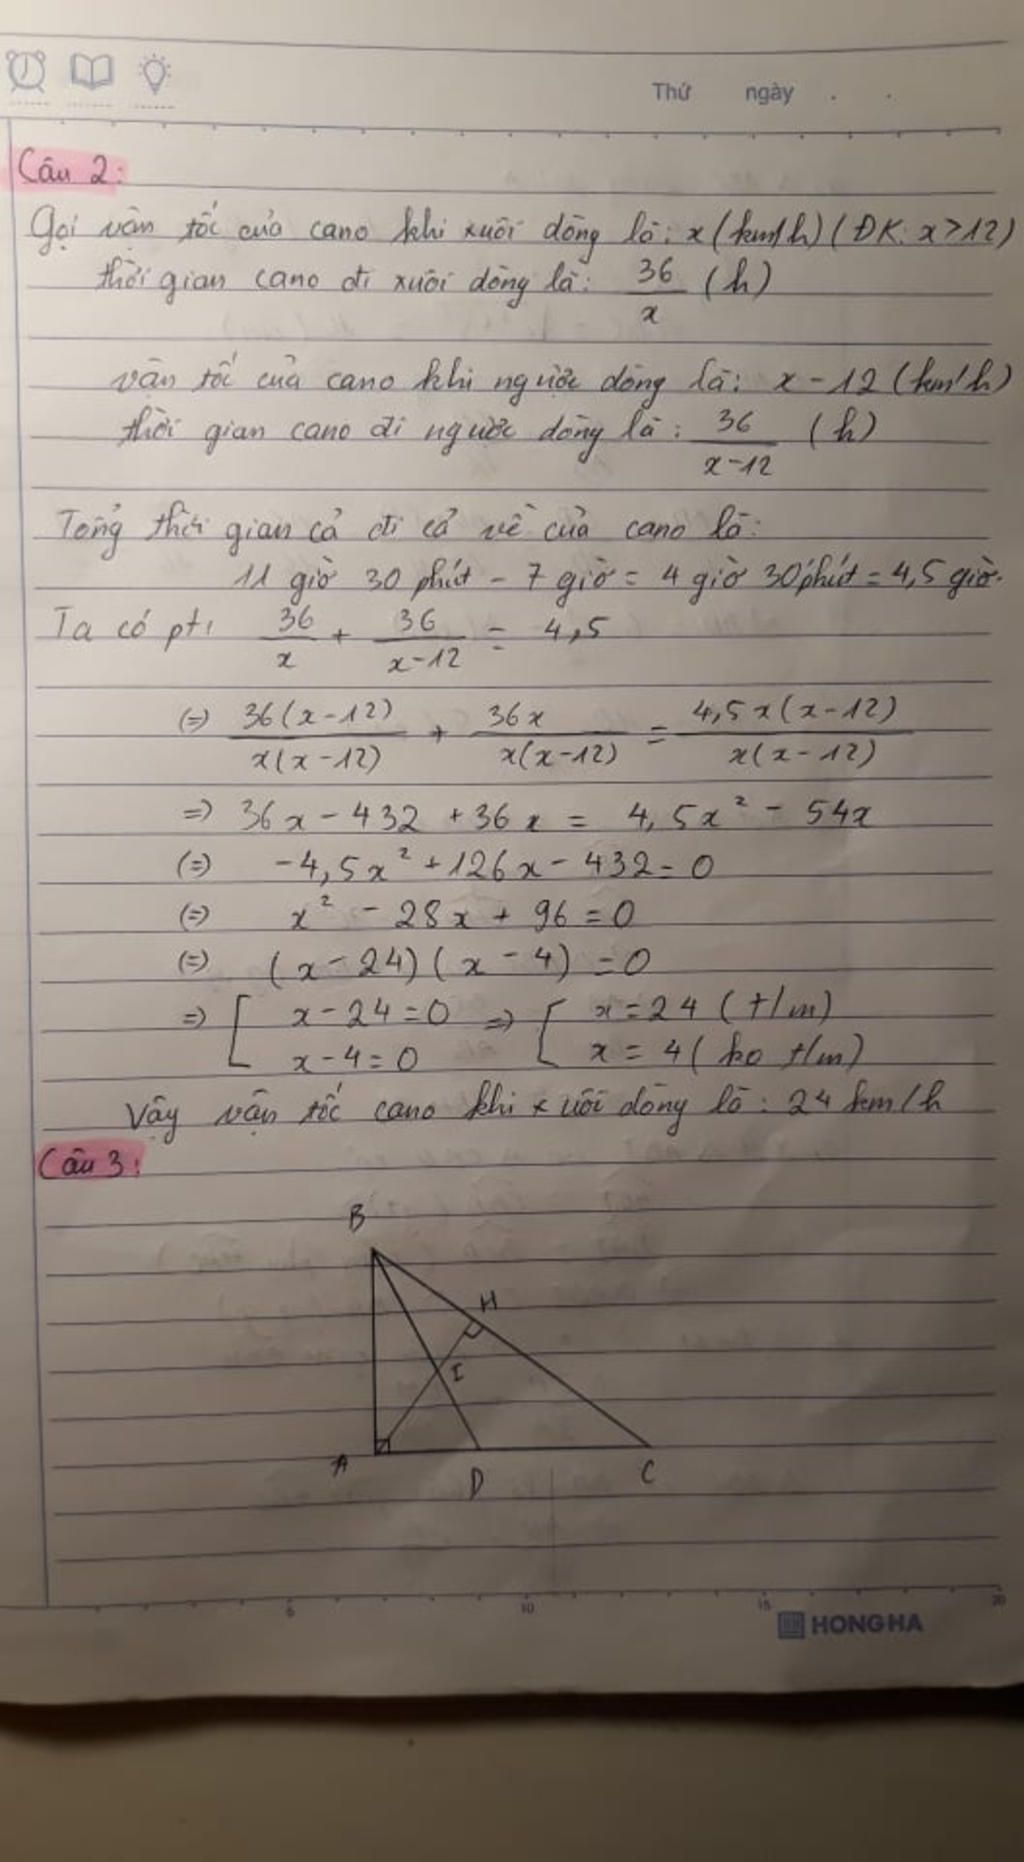 Thứ ngày
Câu 2:
Gọi vận tốc của cano khi xuôi dòng là: x (km/h) (ĐK: x > 12)
thời gian cano đi xuôi dòng là: 36/x (h)
vận tốc của cano khi ngược dòng là: x - 12 (km/h)
thời gian cano đi ngược dòng là: 36/(x-12) (h)
Tổng thời gian cả đi cả về của cano là:
11 giờ 30 phút - 7 giờ = 4 giờ 30 phút = 4,5 giờ.
Ta có pt: 36/x + 36/(x-12) = 4,5
(=) 36(x-12)/x(x-12) + 36x/x(x-12) = 4,5x(x-12)/x(x-12)
=) 36x - 432 + 36x = 4,5x² - 54x
(=) -4,5x² + 126x - 432 = 0
(=) x² - 28x + 96 = 0
(=) (x - 24)(x - 4) = 0
=) [ x - 24 = 0 =) [ x = 24 (t/m)
x - 4 = 0 x = 4 (ko t/m)
Vậy vận tốc cano khi xuôi dòng là: 24 km/h
Câu 3:
B
H
I
A D C
5 10 15 20
HONG HA